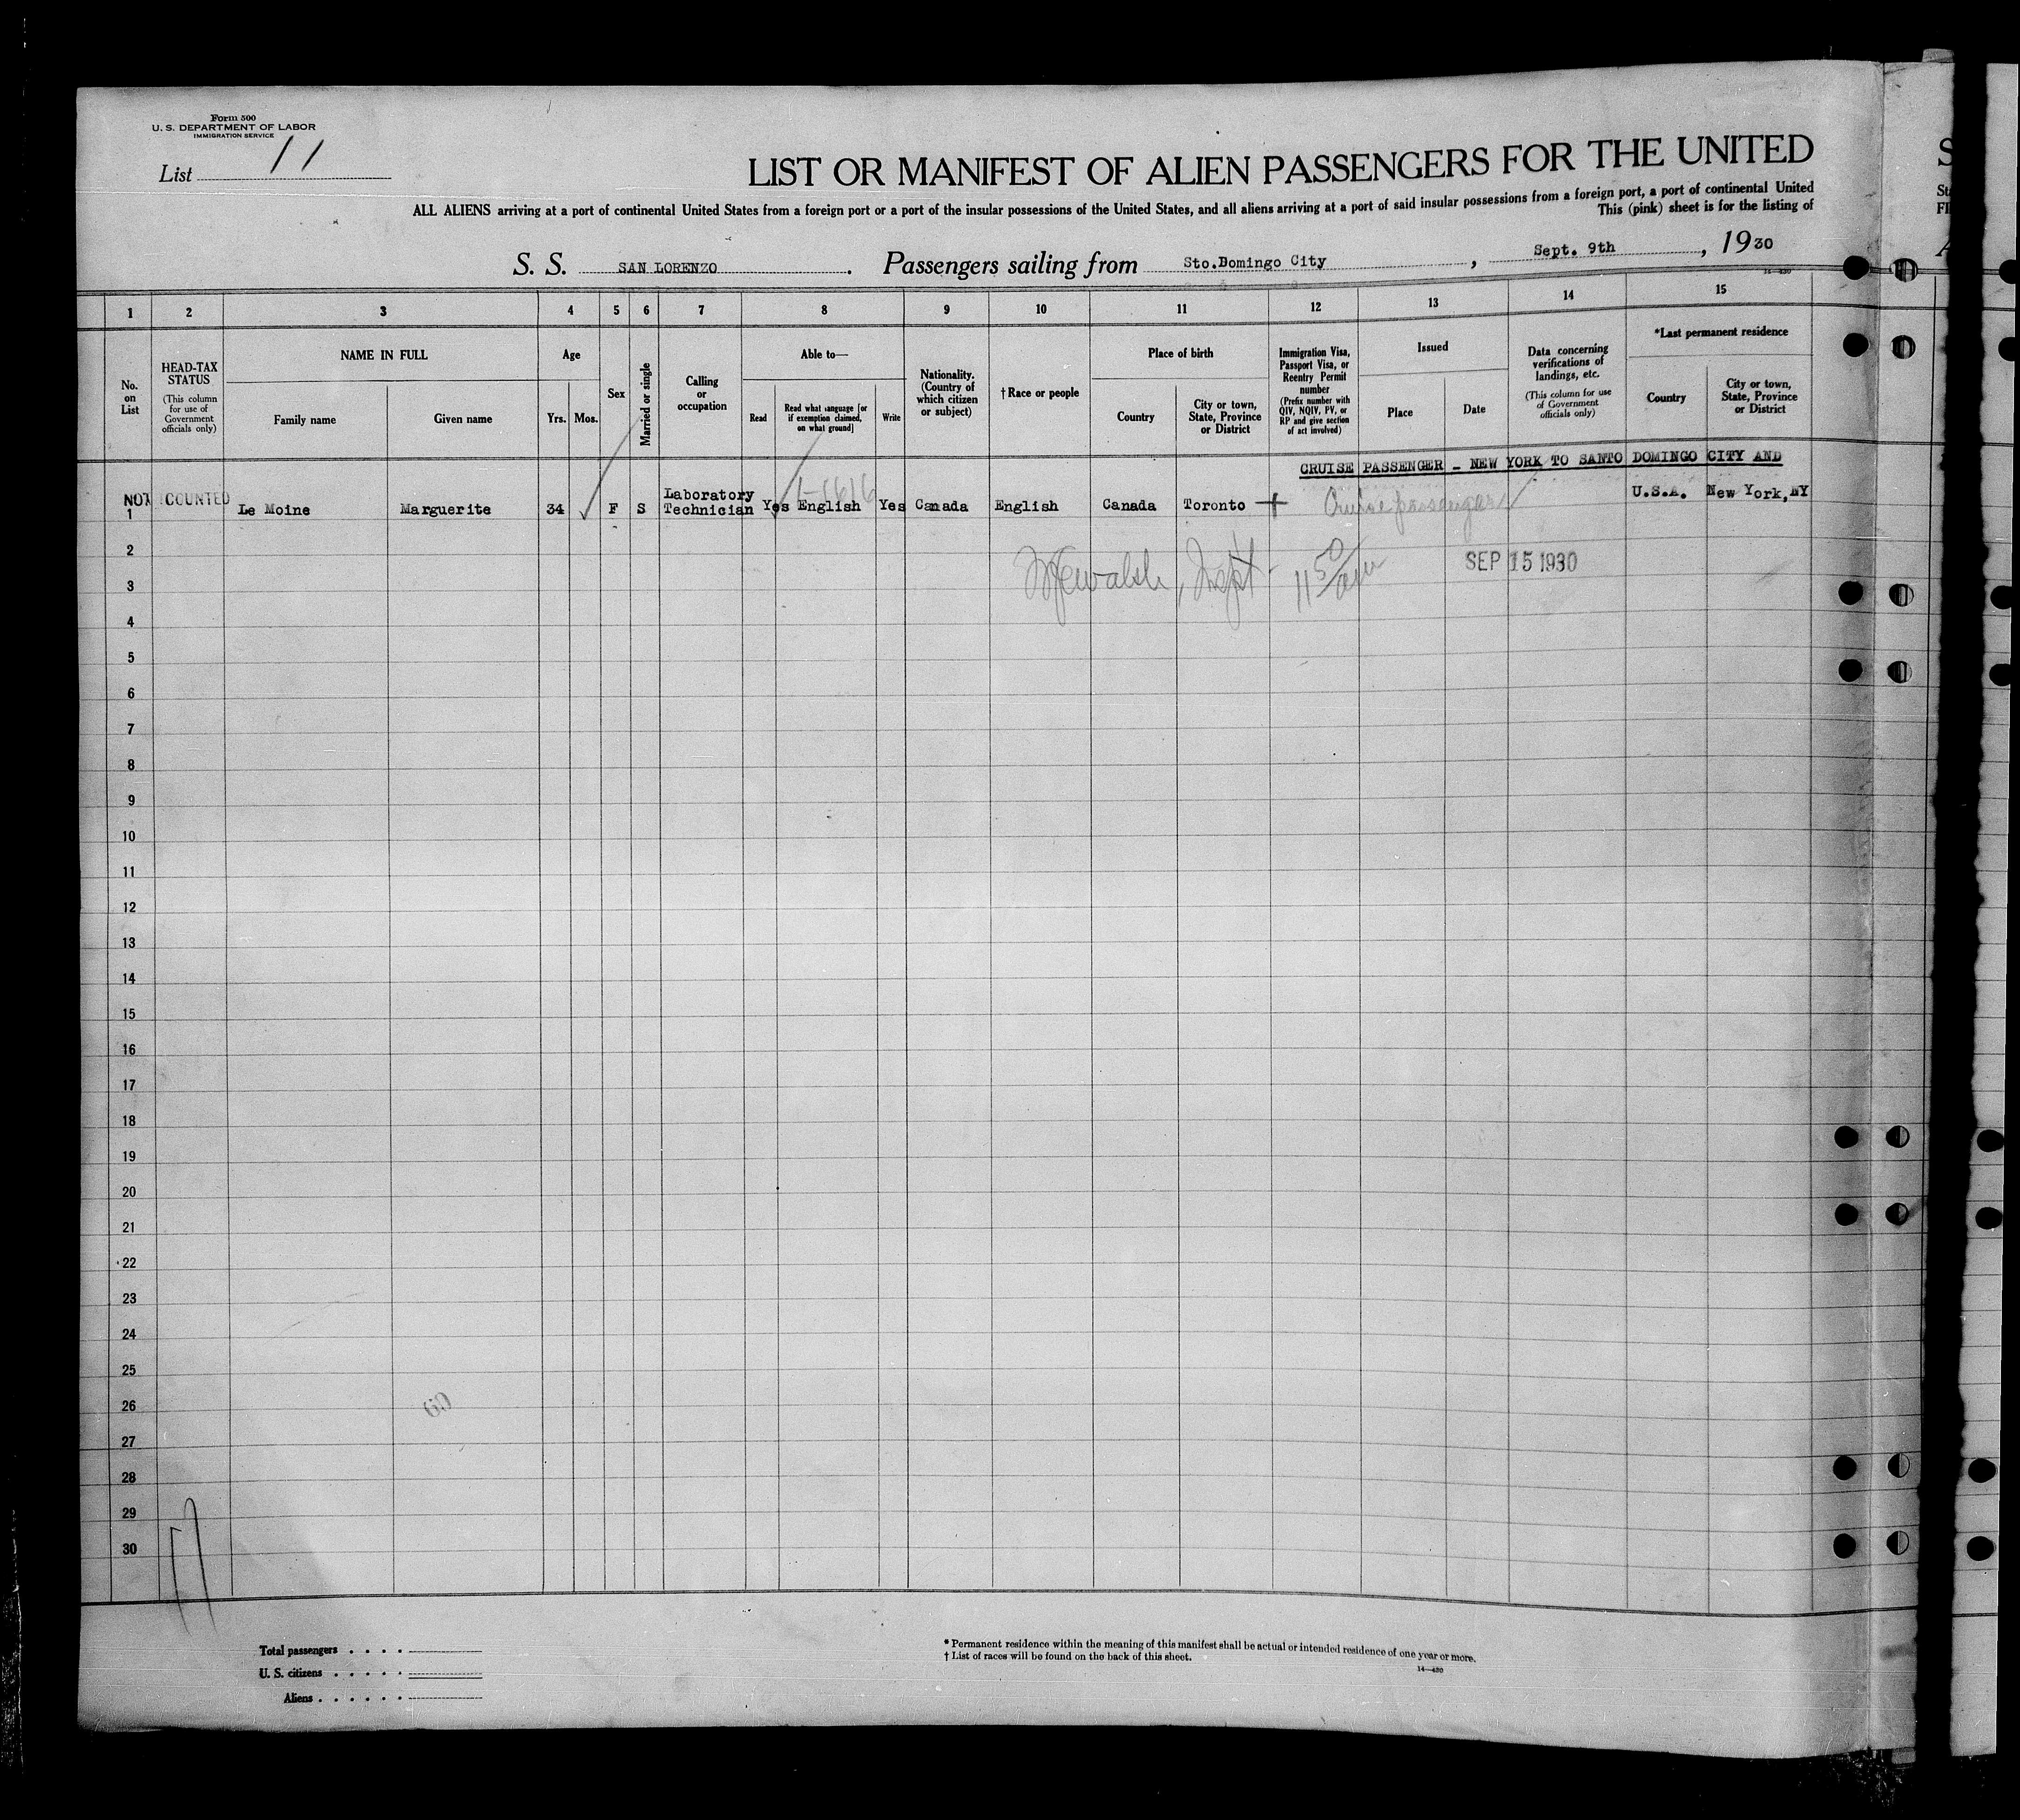 Form 500
U. S. DEPARTMENT OF LABOR
IMMIGRATION SERVICE
List 11
LIST OR MANIFEST OF ALIEN PASSENGERS FOR THE UNITED
ALL ALIENS arriving at a port of continental United States from a foreign port or a port of the insular possessions of the United States, and all aliens arriving at a port of said insular possessions from a foreign port, a port of continental United
This (pink) sheet is for the listing of
S. S. SAN LORENZO. Passengers sailing from Sto.Domingo City, Sept. 9th, 1930
1 2 3 4 5 6 7 8 9 10 11 12 13 14 15
No. on List
HEAD-TAX STATUS
(This column for use of Government officials only)
NAME IN FULL
Family name
Given name
Age
Yrs. Mos.
Sex
Married or single
Calling or occupation
Able to—
Read
Read what language [or if exemption claimed, on what ground]
Write
Nationality. (Country of which citizen or subject)
†Race or people
Place of birth
Country
City or town, State, Province or District
Immigration Visa, Passport Visa, or Reentry Permit number
(Prefix number with QIV, NQIV, PV, or RP and give section of act involved)
Issued
Place
Date
Data concerning verifications of landings, etc.
(This column for use of Government officials only)
*Last permanent residence
Country
City or town, State, Province or District
CRUISE PASSENGER - NEW YORK TO SANTO DOMINGO CITY AND
NOT COUNTED
1 Le Moine Marguerite 34 F S Laboratory Technician Yes English Yes Canada English Canada Toronto Cruise passenger U.S.A. New York, NY
Inspt. 11 50/am SEP 15 1930
2
3
4
5
6
7
8
9
10
11
12
13
14
15
16
17
18
19
20
21
22
23
24
25
26
27
28
29
30
Total passengers . . . .
U. S. citizens . . . . .
Aliens . . . . . .
* Permanent residence within the meaning of this manifest shall be actual or intended residence of one year or more.
† List of races will be found on the back of this sheet.
14—430